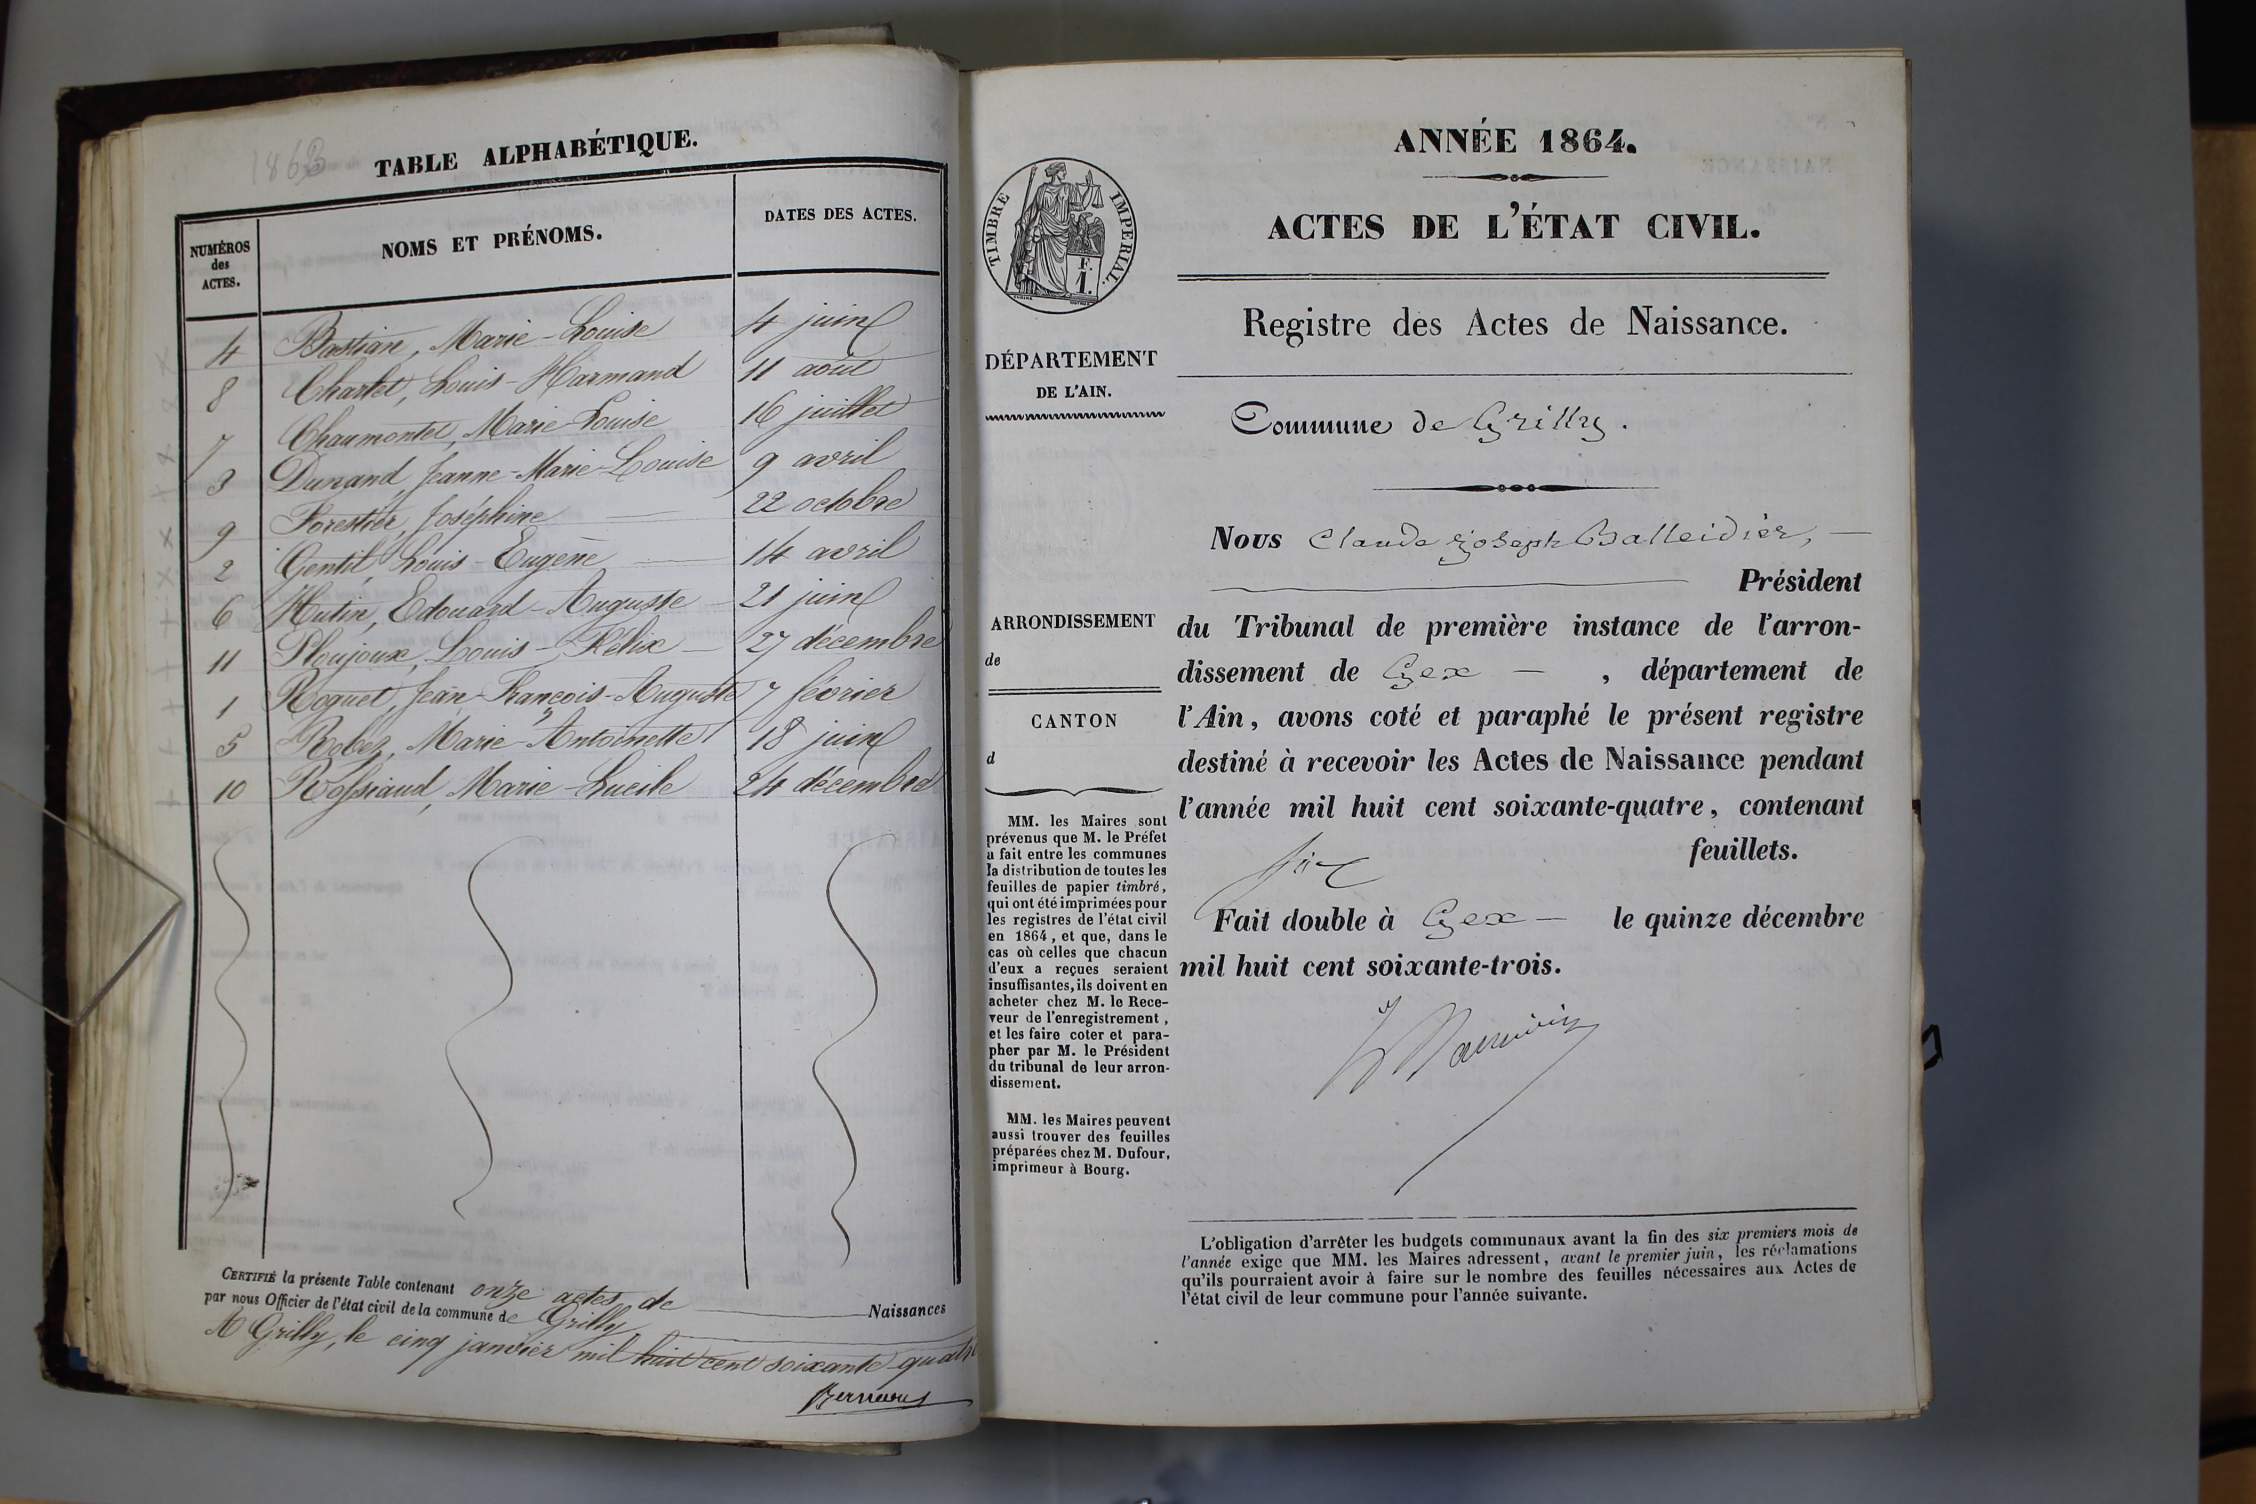 1863
TABLE ALPHABÉTIQUE.
NUMÉROS des ACTES. NOMS ET PRÉNOMS. DATES DES ACTES.
4 Bastian, Marie-Louise 4 juin
8 Charlet, Louis-Harmand 11 août
7 Chaumontet, Marie-Louise 16 juillet
3 Dunand, Jeanne-Marie-Louise 9 avril
9 Forestier, Joséphine 22 octobre
2 Gentil, Louis-Eugène 14 avril
6 Hutin, Edouard-Auguste 21 juin
11 Ploujoux, Louis-Félix 27 décembre
1 Roquet, Jean-François-Auguste 7 février
5 Robez, Marie-Antoinette 18 juin
10 Rossiaud, Marie-Lucile 24 décembre
CERTIFIÉ la présente Table contenant onze actes de Naissances
par nous Officier de l'état civil de la commune de Grilly
A Grilly, le cinq janvier mil huit cent soixante-quatre
TIMBRE IMPERIAL.
F.
1.
DÉPARTEMENT
DE L'AIN.
ARRONDISSEMENT
de
CANTON
d
MM. les Maires sont
prévenus que M. le Préfet
a fait entre les communes
la distribution de toutes les
feuilles de papier timbré,
qui ont été imprimées pour
les registres de l'état civil
en 1864, et que, dans le
cas où celles que chacun
d'eux a reçues seraient
insuffisantes, ils doivent en
acheter chez M. le Rece-
veur de l'enregistrement,
et les faire coter et para-
pher par M. le Président
du tribunal de leur arron-
dissement.
MM. les Maires peuvent
aussi trouver des feuilles
préparées chez M. Dufour,
imprimeur à Bourg.
ANNÉE 1864.
ACTES DE L'ÉTAT CIVIL.
Registre des Actes de Naissance.
Commune de Grilly.
Nous Claude Joseph Balleidier,
Président
du Tribunal de première instance de l'arron-
dissement de Gex, département de
l'Ain, avons coté et paraphé le présent registre
destiné à recevoir les Actes de Naissance pendant
l'année mil huit cent soixante-quatre, contenant
six feuillets.
Fait double à Gex le quinze décembre
mil huit cent soixante-trois.
L'obligation d'arrêter les budgets communaux avant la fin des six premiers mois de
l'année exige que MM. les Maires adressent, avant le premier juin, les réclamations
qu'ils pourraient avoir à faire sur le nombre des feuilles nécessaires aux Actes de
l'état civil de leur commune pour l'année suivante.